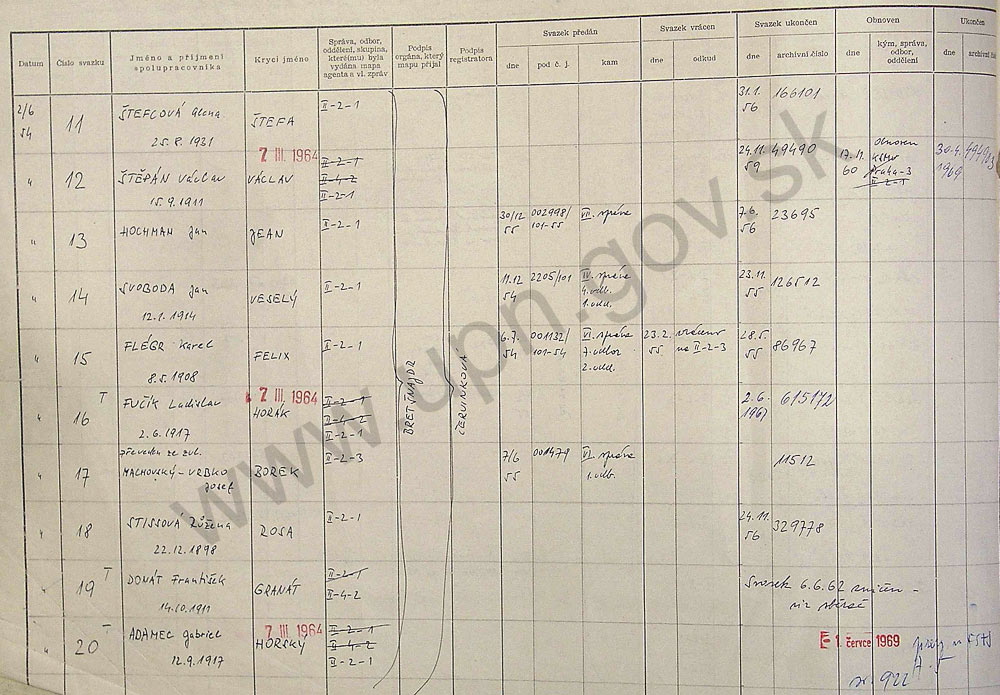 Datum
Číslo svazku
Jméno a příjmení
spolupracovníka
Krycí jméno
Správa, odbor,
oddělení, skupina,
které(mu) byla
vydána mapa
agenta a vl. zpráv
Podpis
orgána, který
mapu přijal
Podpis
registrátora
Svazek předán
dne
pod č. j.
kam
Svazek vrácen
dne
odkud
Svazek ukončen
dne
archivní číslo
Obnoven
dne
kým, správa,
odbor,
oddělení
Ukončen
dne
archivní
2/6
54
11
ŠTEFCOVÁ Alena
25. 8. 1931
ŠTEFA
II-2-1
31.1.
56
166101
" 12
ŠTĚPÁN Václav
15.9.1911
7 III. 1964
VÁCLAV
II-2-1
II-4-2
II-2-1
24.11.
59
49490
17.11.
60
obnoven
Praha-3
II-2-1
30.4.
1969
" 13
HOCHMAN Jan
JEAN
II-2-1
30/12
55
002998/
101-55
VII. správa
7.6.
56
23695
" 14
SVOBODA Jan
12.1.1914
VESELÝ
II-2-1
11.12
54
2205/101
IV. správa
4. odb.
1. odd.
23.11.
55
126512
" 15
FLÉGR Karel
8.5.1908
FELIX
II-2-1
6.7.
54
001132/
101-54
VI. správa
7. odbor
2. odd.
23.2.
55
vráceno
na II-2-3
28.5.
55
86967
" 16 T
FUČÍK Ladislav
2.6.1917
7 III. 1964
HORÁK
II-2-1
II-4-2
II-2-1
2.6.
1961
615172
BRETŠNAJDR
ČERVINKOVÁ
" 17
převeden ze zvl.
MACHOVSKÝ-VRBKO
Josef
BOREK
II-2-3
7/6
55
001479
VI. správa
1. odb.
11512
" 18
STISSOVÁ Růžena
22.12.1898
ROSA
II-2-1
24.11.
56
329778
" 19 T
DONÁT František
14.10.1911
GRANÁT
II-2-1
II-4-2
Svazek 6.6.62 zničen -
viz sběrač
" 20 T
ADAMEC Gabriel
12.9.1917
7 III. 1964
HORSKÝ
II-2-1
II-4-2
II-2-1
1. července 1969
922
www.upn.gov.sk